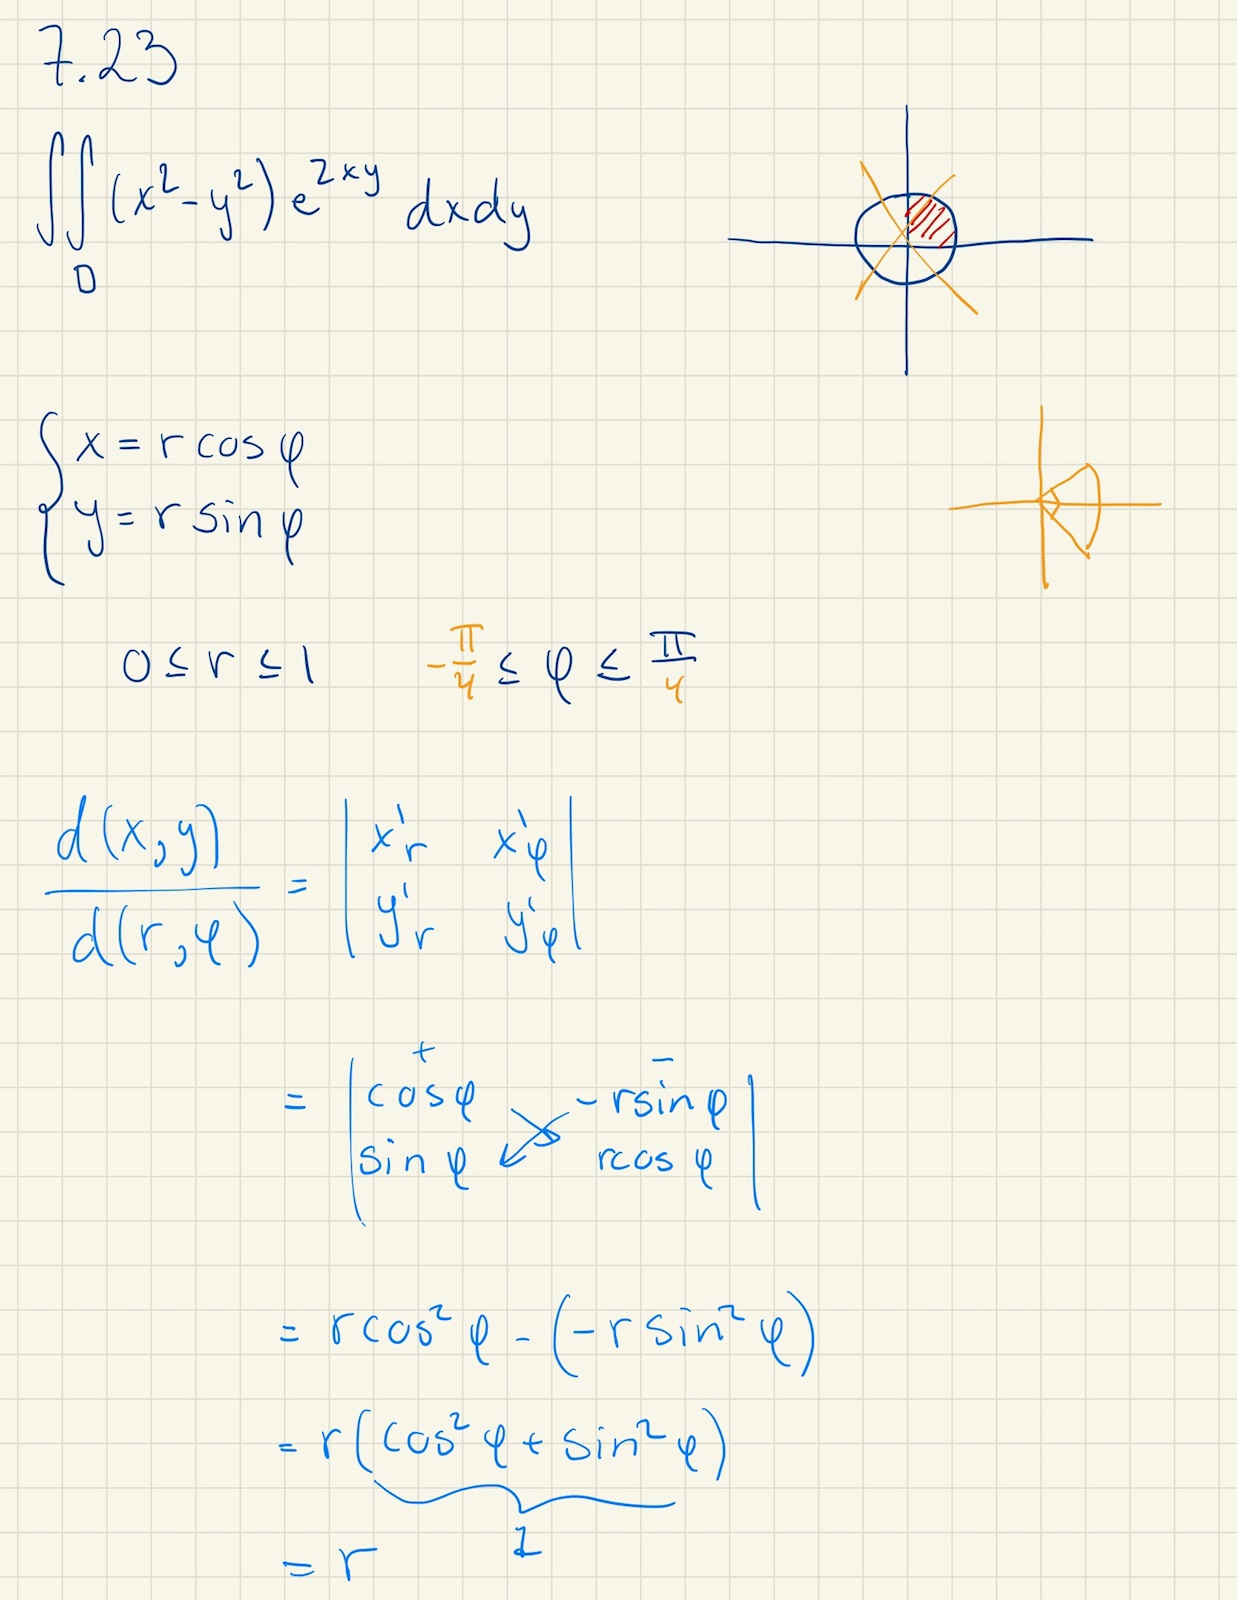 7.23
∬ (x² - y²) e^{2xy} dxdy
D
{ x = r cos φ
y = r sin φ
0 ≤ r ≤ 1 -π/4 ≤ φ ≤ π/4
d(x,y) / d(r,φ) = | x'r x'φ |
| y'r y'φ |
+ -
= | cos φ - r sin φ |
| sin φ r cos φ |
= r cos² φ - (- r sin² φ)
= r (cos² φ + sin² φ)
1
= r